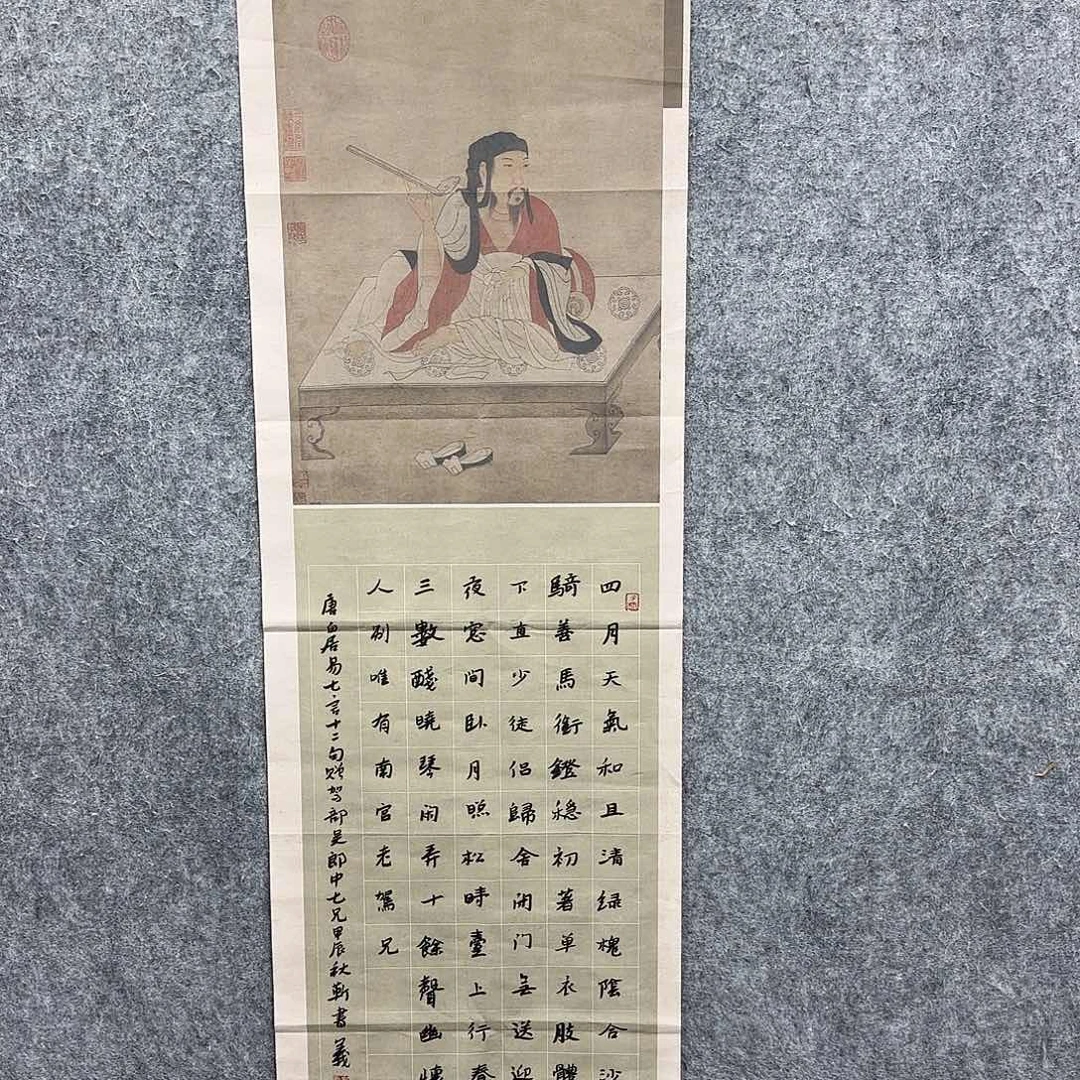 四月天氣和且清绿槐陰合沙
騎善馬銜鐙穏初著单衣肢體
下直少徒侣歸舍闭门無送迎
夜窓间卧月照松時臺上行春
三數醆曉琴闲弄十餘聲幽懐
人别唯有南宫老駕兄
唐白居易七言十二句赠驾部吴郎中七兄甲辰秋靳書義